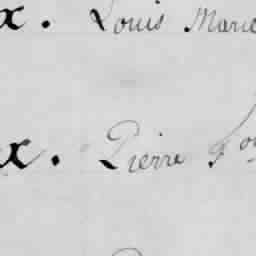 x. Louis Marie
x. Pierre